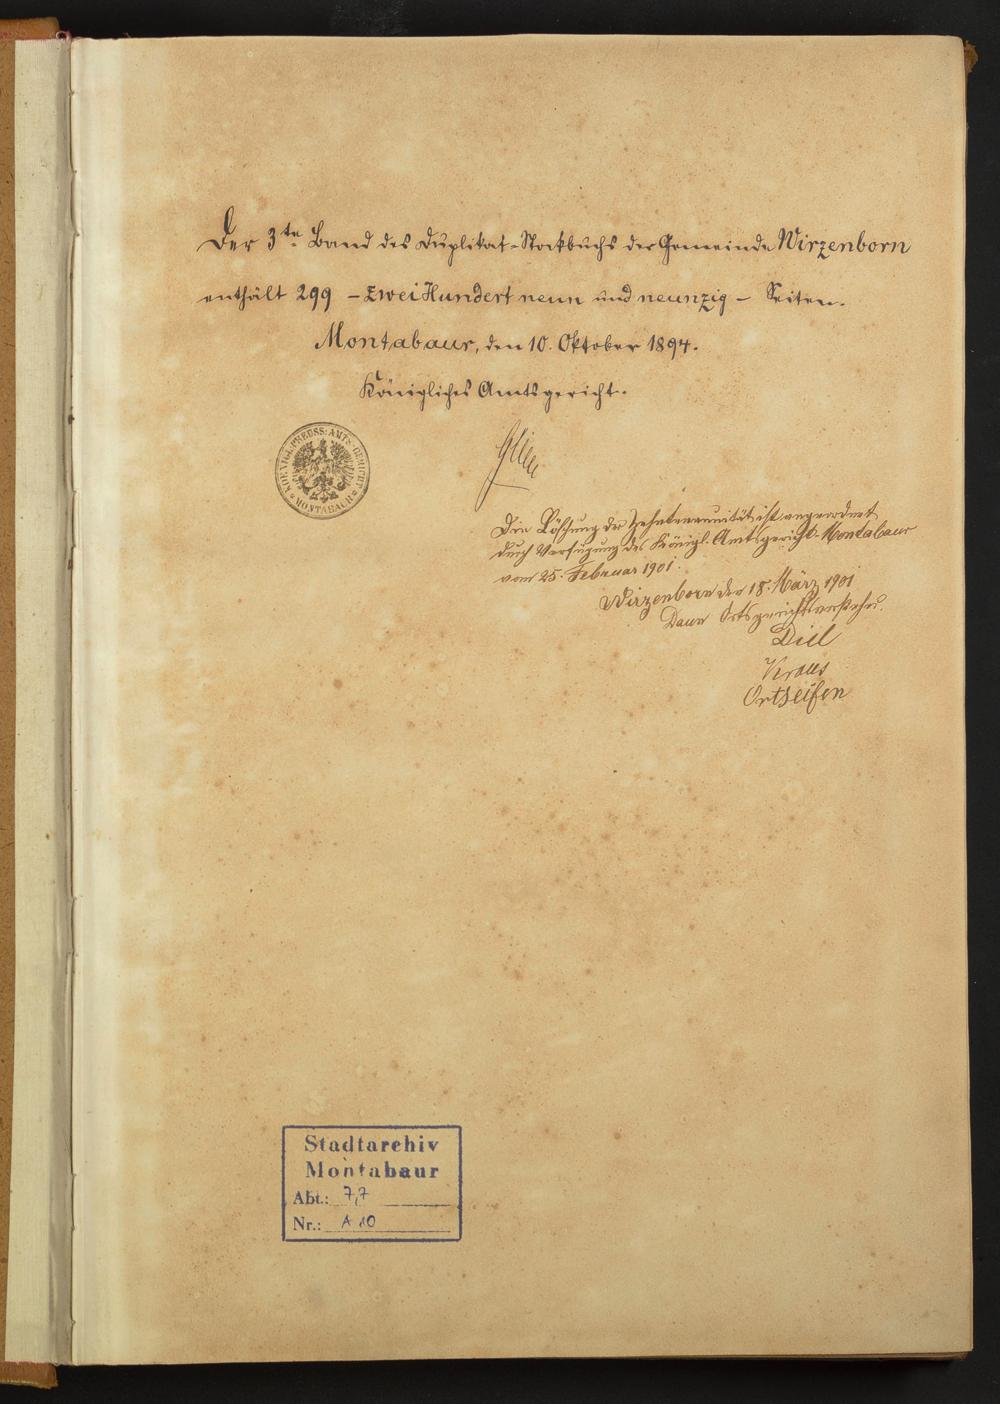 Der 3te Band des Duplikat-Stockbuchs der Gemeinde Wirzenborn
enthält 299 – zwei Hundert neun und neunzig – Seiten.
Montabaur, den 10. Oktober 1894.
Königliches Amtsgericht.
KOENIGL: PREUSS: AMTS-GERICHT
* MONTABAUR *
Die Löschung der Zehntannuität ist angeordnet
durch Verfügung des Königl. Amtsgericht Montabaur
vom 25. Februar 1901.
Wirzenborn den 18. März 1901
Ortsgerichtsvorsteher.
Diel
Kraus
Ortseifen
Stadtarchiv
Montabaur
Abt.: 7,7
Nr.: A 10